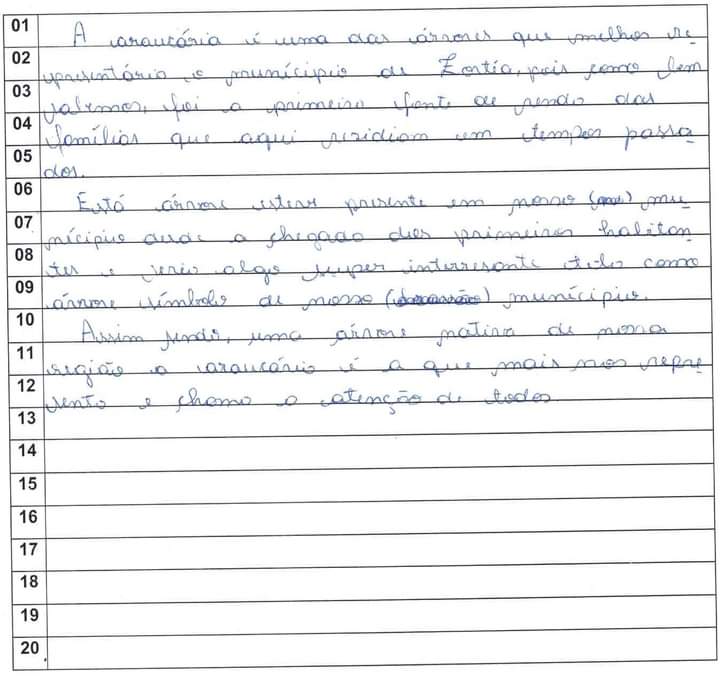 01 A araucária é uma das árvores que melhor re-
02 presentária o munícipio de Zortéa, pois como bem
03 sabemos, foi a primeira fonte de renda das
04 famílias que aqui residiam em tempos passa-
05 dos.
06 Está árvore esteve presente em nosso () mu-
07 nícipio desde a chegada dos primeiros habitan-
08 tes e seria algo super interresante tela como
09 árvore símbolo de nosso () munícipio.
10 Assim sendo, uma árvore nativa de nossa
11 região a araucária é a que mais nos repre
12 senta e chama a atenção de todos
13
14
15
16
17
18
19
20